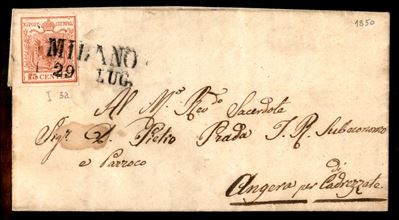 1850
KKPOST-STEMPEL
15 CENTES
MILANO
29 LUG.
I 32
Al M.º Rev.do Sacerdote
Sig.r D. Pietro Prada I. R. Subeconomo
e Parroco
di
Angera per Cadrezzate